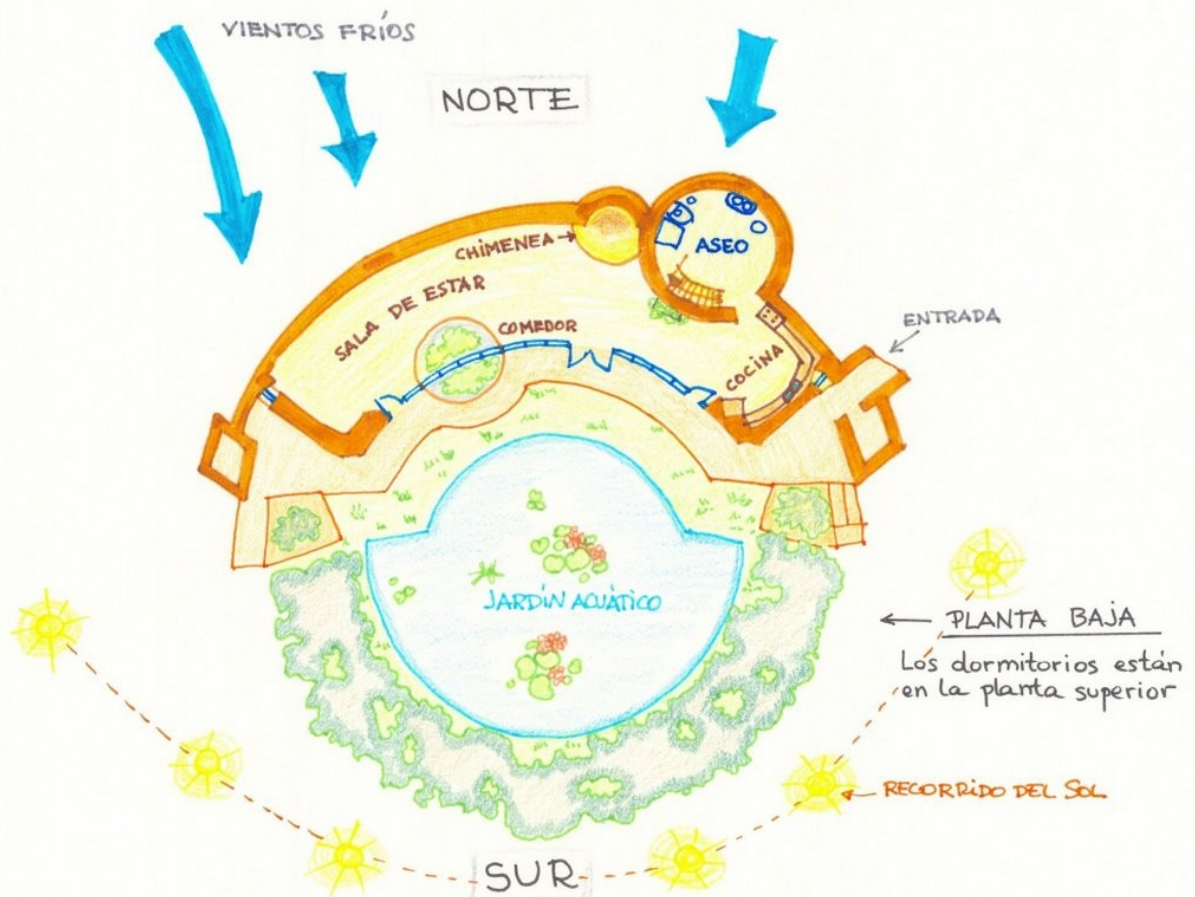 VIENTOS FRÍOS
NORTE
CHIMENEA
ASEO
SALA DE ESTAR
COMEDOR
COCINA
ENTRADA
JARDÍN ACUÁTICO
PLANTA BAJA
Los dormitorios están
en la planta superior
RECORRIDO DEL SOL
SUR